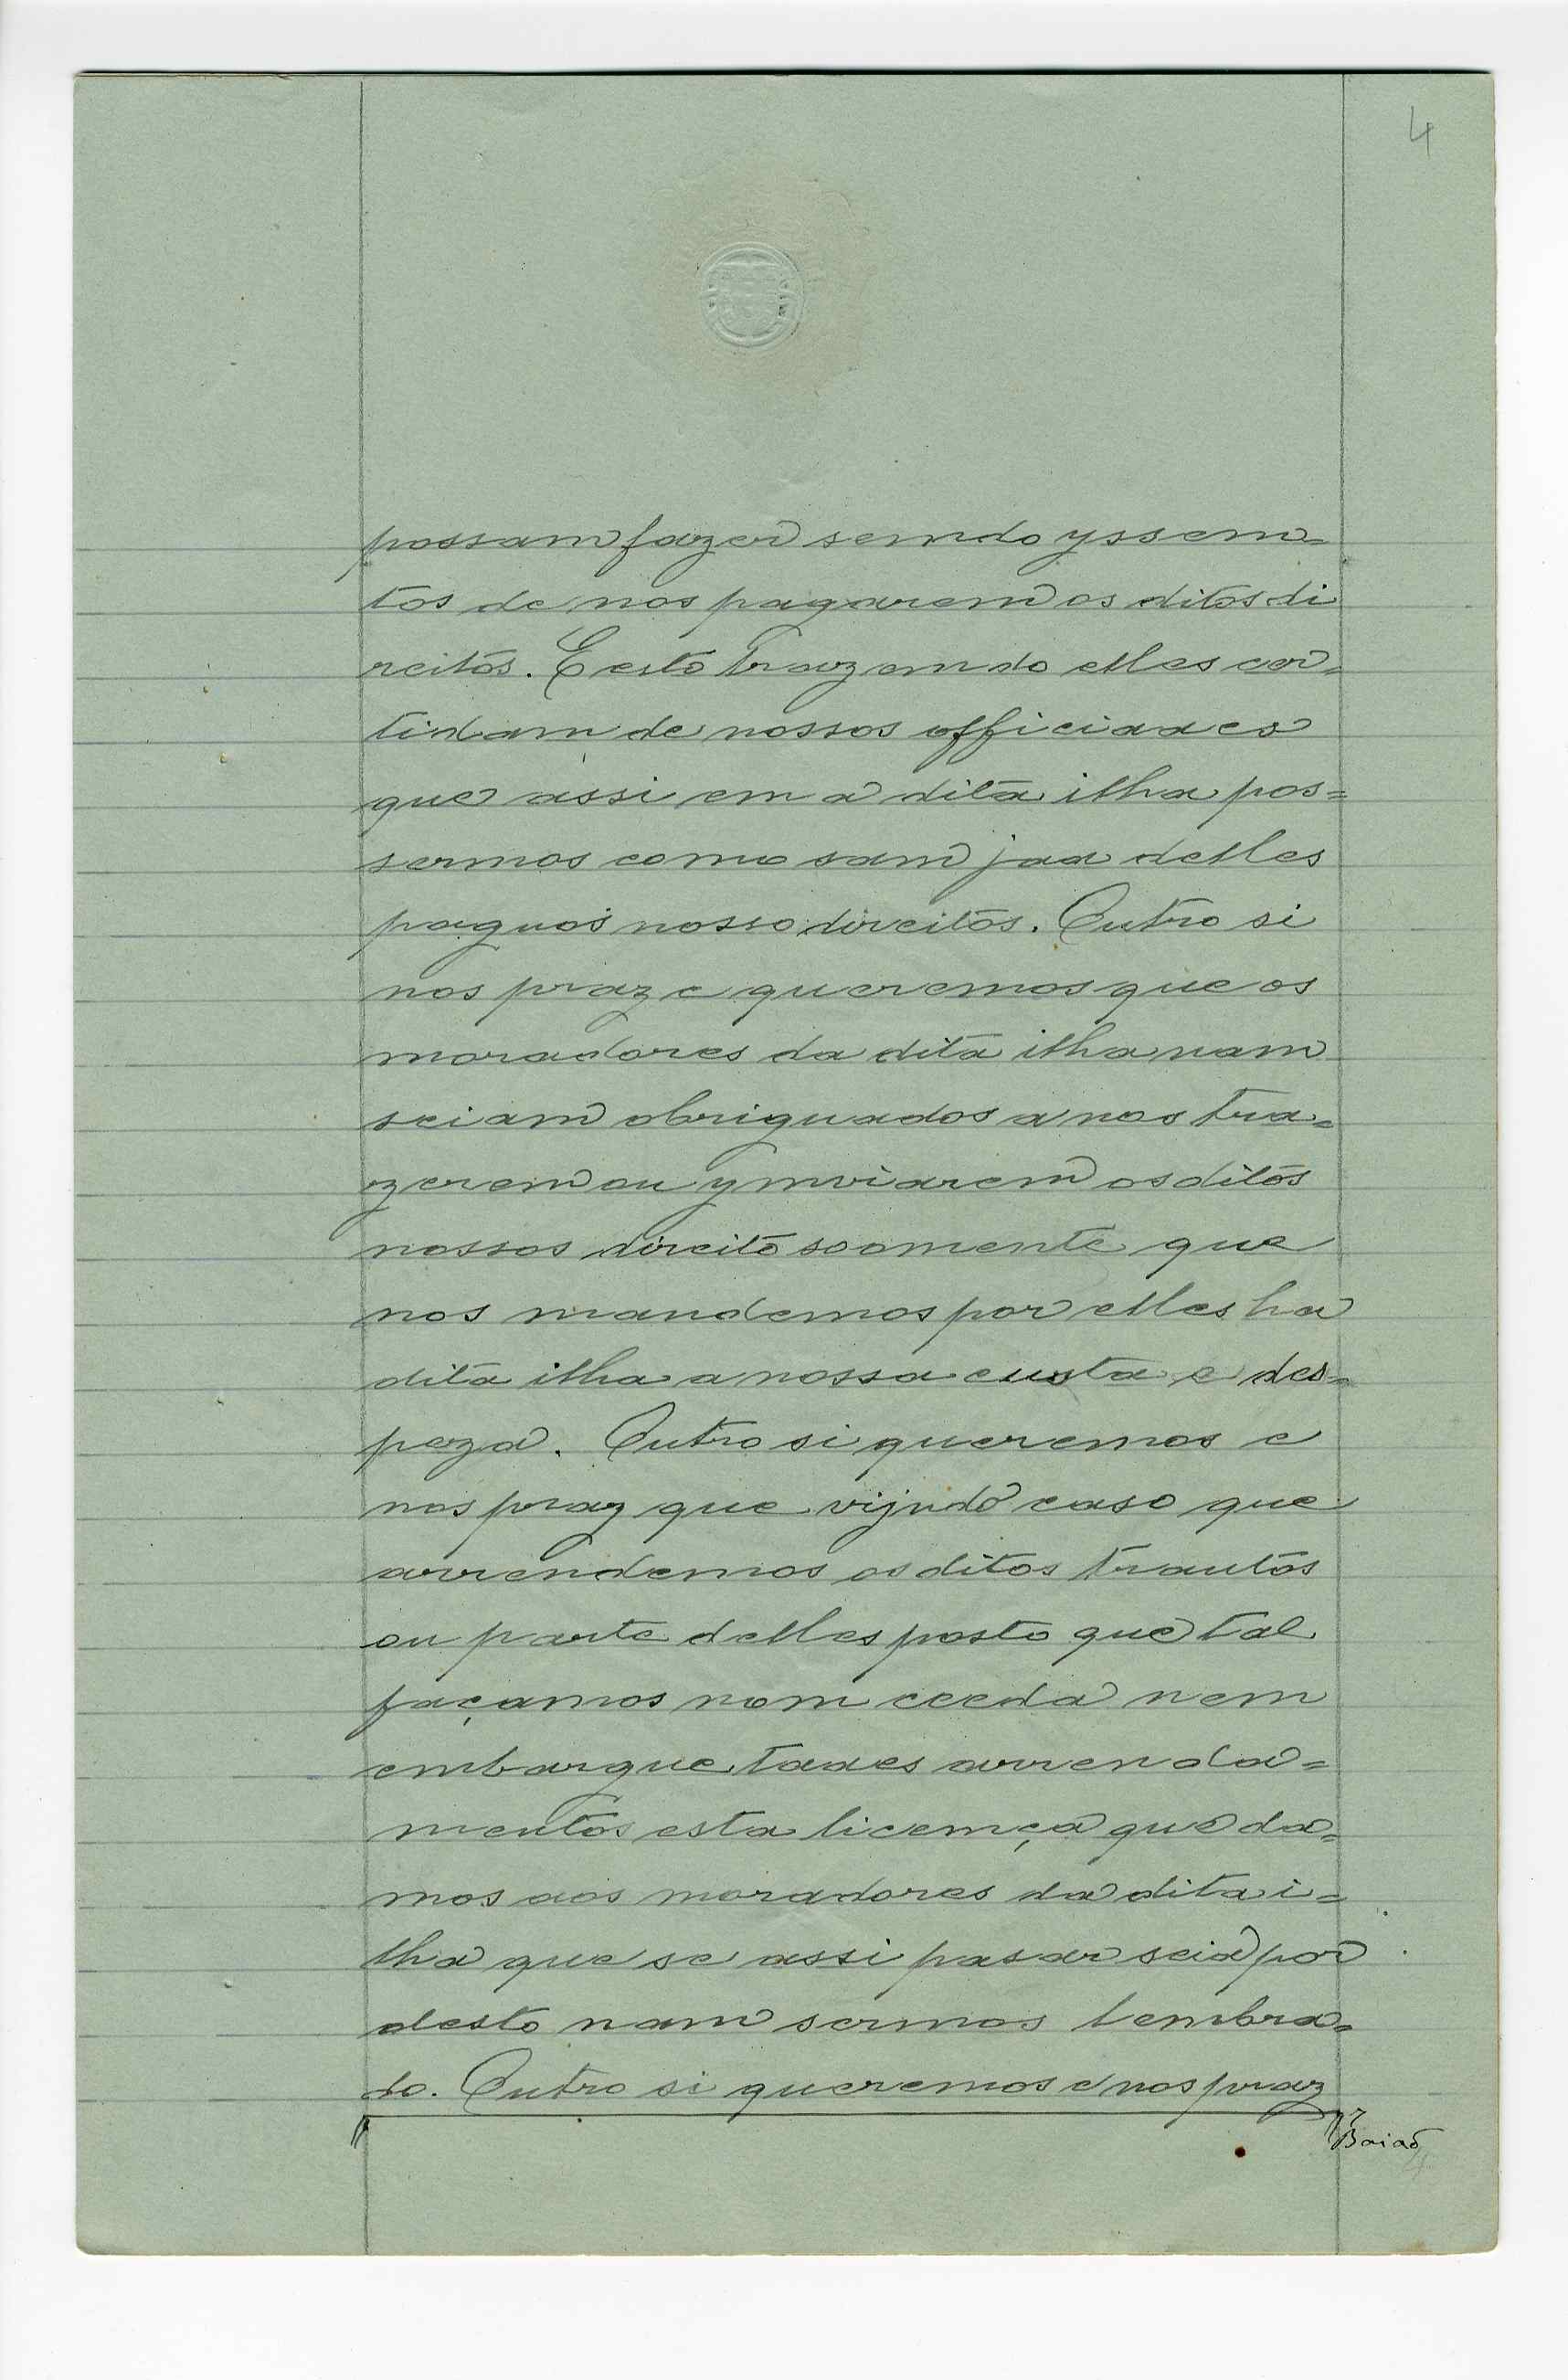 4
possam fazer sendo yssem=
tos de nos pagarem os ditos di
reitos. E esto trazemdo elles cer=
tidam de nossos officiaaes
que assi em a dita ilha pos=
sermos como sam jaa delles
paguos nosso direitos. Outro si
nos praz e queremos que os
moradores da dita ilha nam
seiam obriguados a nos tra=
zerem ou ymviarem os ditos
nossos direito soomente que
nos mandemos por elles ha
dita ilha a nossa custa e des=
peza. Outro si queremos e
nos praz que vijndo caso que
arrendemos os ditos trautos
ou parte delles posto que tal
façamos nom ceeda nem
embargue taaes arrenda=
mentos esta licemça que da=
mos aos moradores da dita i=
lha que se assi pasar seia por
desto nam sermos lembra=
do. Outro si queremos e nos praz
Baião